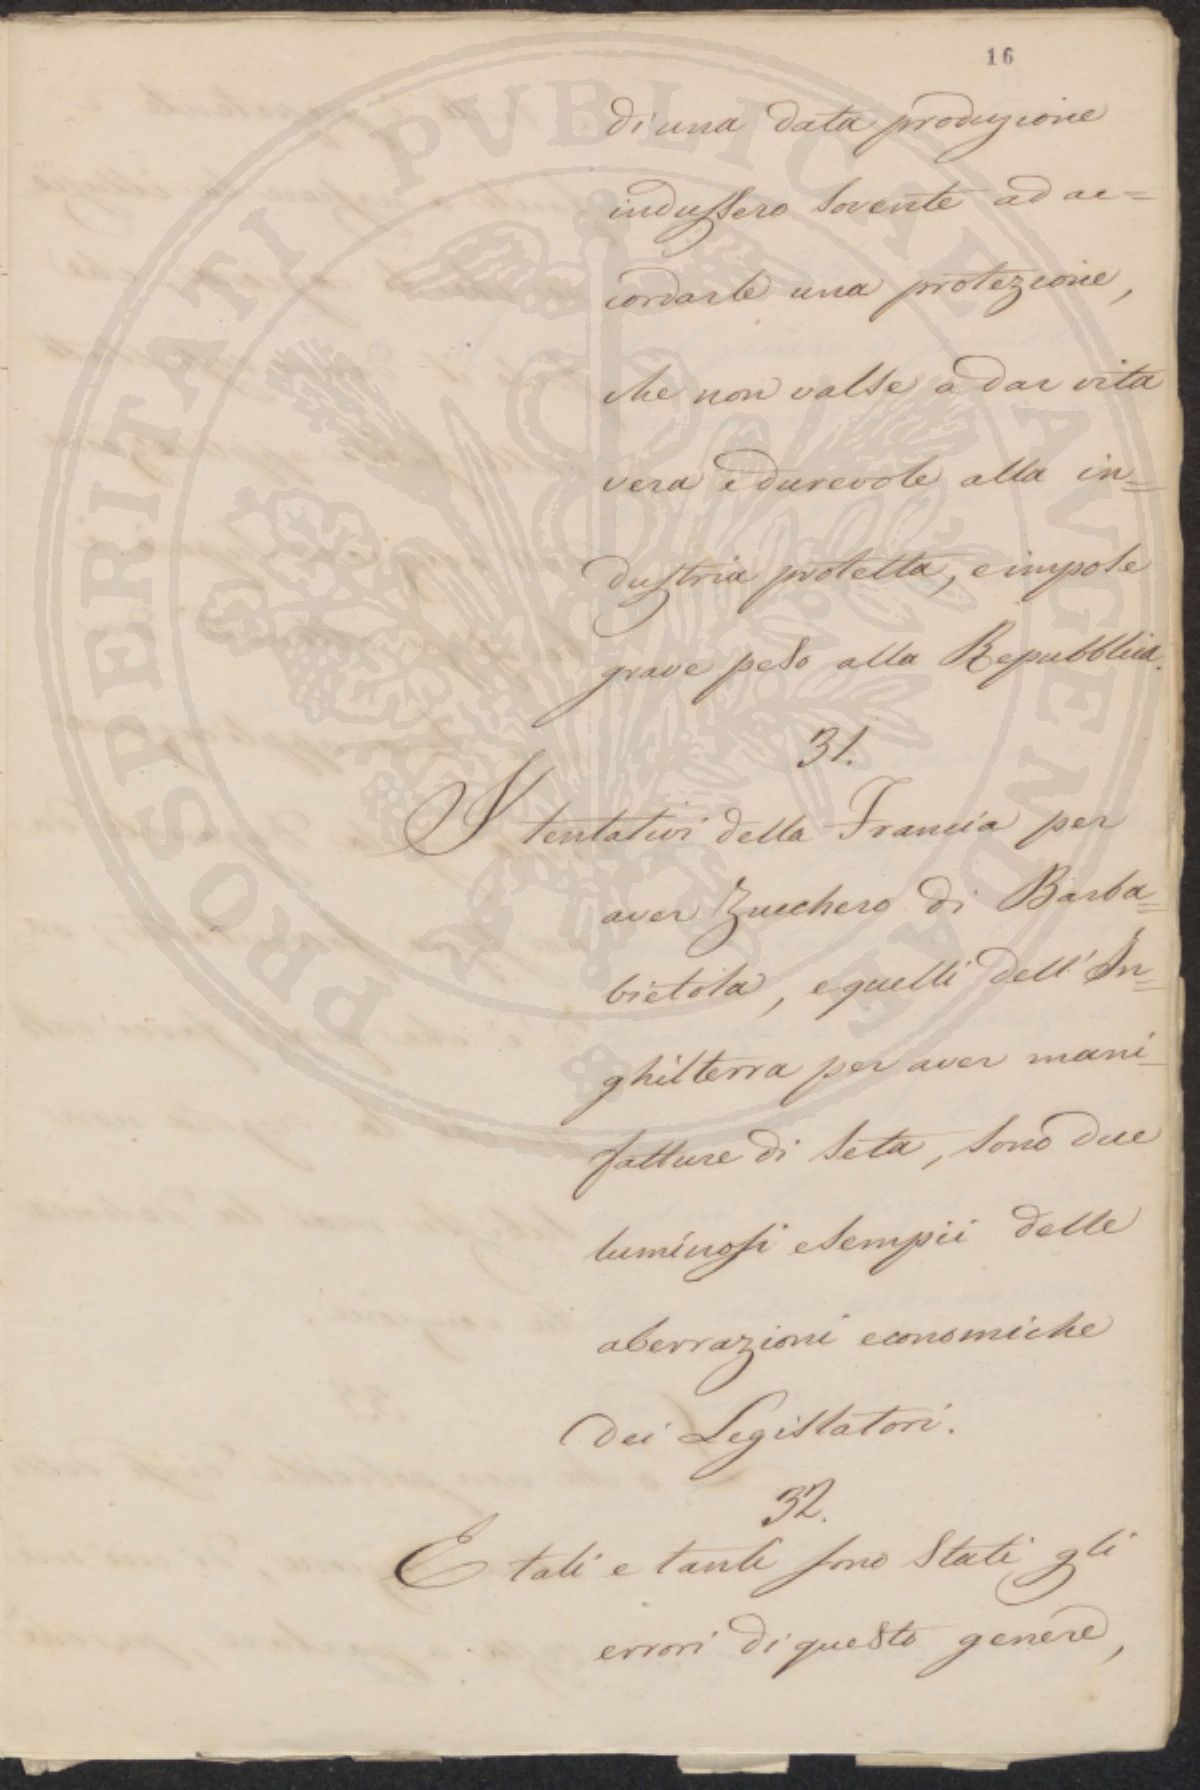 16
di una data produzione
indussero sovente ad ac=
cordarle una protezione,
che non valse a dar vita
vera e durevole alla in=
dustria protetta, e impose
grave peso alla Repubblica.
31.
I tentativi della Francia per
aver Zucchero di Barba=
bietola, e quelli dell'In=
ghilterra per aver mani=
fatture di seta, sono due
luminosi esempii delle
aberrazioni economiche
dei Legislatori.
32.
E tali e tanti sono stati gli
errori di questo genere,
PROSPERITATI PVBLICAE AVGENDAE